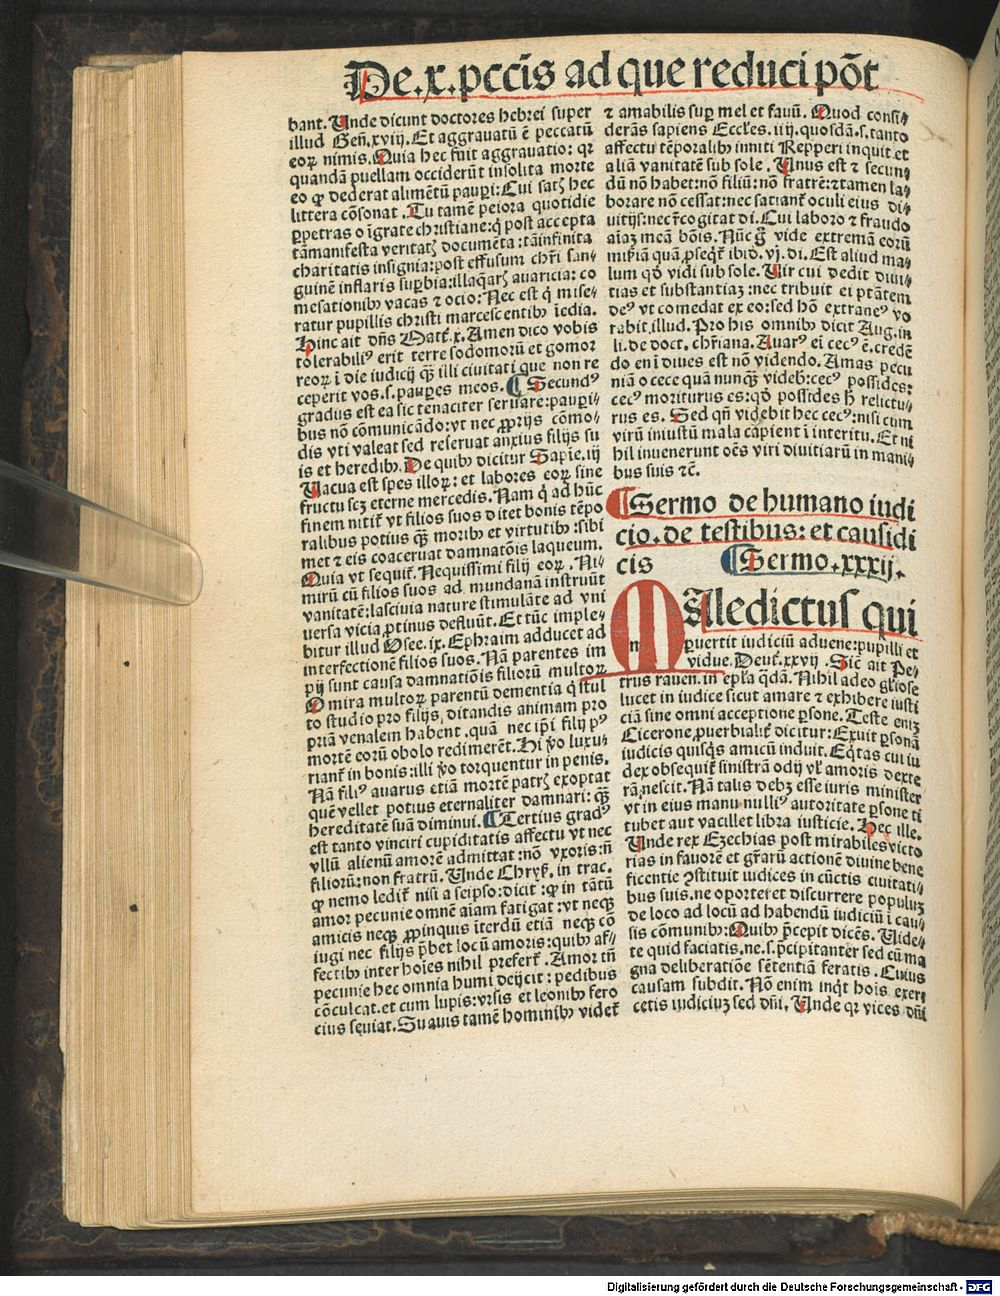 De.x.pccīs ad que reduci pōt
bant. Unde dicunt doctores hebrei super
illud Geñ.xviij. Et aggravatū ē peccatū
eoꝝ nimis. Quia hec fuit aggravatio: qꝛ
quandā puellam occiderūt insolita morte
eo ꝙ dederat alimētū pauꝑi: Cui satꝫ hec
littera cōsonat. Tu tamē peiora quotidie
ꝑpetras o īgrate christiane: q̇ post accepta
tā manifesta veritatꝫ documēta: tā infinita
charitatis insignia: post effusum chr̄i san⸗
guinē inflaris suꝑbia: illaq̄arꝫ avaricia: co
mesationibꝰ vacas ⁊ ocio: Nec est q̇ mise⸗
ratur pupillis christi marcescentibꝰ īedia.
Hinc ait dn̄s Matt̄.x. Amen dico vobis
tolerabiliꝰ erit terre sodomorū et gomor
reoꝝ ī die iudicij qꝫ̄ illi ciuitati que non re
ceperit vos.s.pauꝑes meos. ¶ Secundꝰ
gradus est ea sic tenaciter seruare: pauꝑi⸗
bus nō cōmunicādo: vt nec ꝓprijs cōmo⸗
dis vti valeat sed reseruat anxius filijs su
is et heredibꝰ. De quibꝰ dicitur Sapie.iij
Uacua est spes illoꝝ: et labores eoꝝ sine
fructu scꝫ eterne mercedis. Nam q̇ ad hūc
finem nitit̄ vt filios suos ditet bonis tēpo
ralibus potius qꝫ̄ moribꝰ et virtutibꝰ: sibi
met ⁊ eis coaceruat damnatōis laqueum.
Quia vt sequit̄. Nequissimi filij eoꝝ. Ni⸗
mirū cū filios suos ad mundanā instruūt
vanitatē: lasciuia nature stimulāte ad vni
uersa vicia ꝓtinus defluūt. Et tūc imple⸗
bitur illud Osee.ix. Ephraim adducet ad
interfectionē filios suos. Nā parentes im
pij sunt causa damnatiōis filiorū multoꝝ
O mira multoꝝ parentū dementia q̇ stul
to studio pro filijs, ditandis animam pro
priā venalem habent, quā nec ip̄i filij pꝰ
mortē eorū obolo redimerēt. Hi ꝟo luxu⸗
riant̄ in bonis: illi ꝟo torquentur in penis.
Nā filiꝰ auarus etiā mortē patrꝫ exoptat
quē vellet potius eternaliter damnari: qꝫ̄
hereditatē suā diminui. ¶ Tertius gradꝰ
est tanto vinciri cupiditatis affectu vt nec
vllū alienū amorē admittat: nō vxoris: n̄
filiorū: non fratrū. Unde Chryẜ. in trac.
ꝙ nemo ledit̄ nisi a seipso: dicit: ꝙ in tātū
amor pecunie omnē aīam fatigat: vt neqꝫ
amicis neqꝫ ꝓpinquis īterdū etiā neqꝫ cō
iugi nec filijs p̄bet locū amoris: quibꝰ af⸗
fectibꝰ inter hoīes nihil prefert̄. Amor tn̄
pecunie hec omnia humi deijcit: pedibus
cōculcat. et cum lupis: vrsis et leonibꝰ fero
cius seuiat. Suauis tamē hominibꝰ videt̄
⁊ amabilis suꝑ mel et fauū. Quod consi⸗
derās sapiens Eccl̄es.iiij. quosdā.s.tanto
affectu tēporalibꝰ inniti Repperi inquit et
aliā vanitatē sub sole. Unus est ⁊ secun
dū nō habet: nō filiū: nō fratrē: ⁊ tamen la⸗
borare nō cessat: nec satiant̄ oculi eius di⸗
uitijs: nec r̄cogitat di. Cui laboro ⁊ fraudo
aīaꝫ meā bōis. Nūc ḡ vide extremā eorū
miẜiā quā ꝓseqt̄ ibid.vj.di. Est aliud ma⸗
lum qđ vidi sub sole. Uir cui dedit diui⸗
tias et substantiaꝫ: nec tribuit ei ptātem
deꝰ vt comedat ex eo: sed hō extraneꝰ vo
rabit illud. Pro his omnibꝰ dicit Aug. in
li. de doct. chr̄iana. Auarꝰ ei cecꝰ ē, credē
do eni diues est nō videndo. Amas pecu
niā o cece quā nunqꝫ̄ videb̄: cecꝰ possides:
cecꝰ moriturus es: qđ possides h̄ relictu⸗
rus es. Sed qn̄ videbit hec cecꝰ: nisi cum
virū iniustū mala capient ī interitu. Et ni
hil inuenerunt oēs viri diuitiarū in mani⸗
bus suis ⁊c̄.
¶ Sermo de humano iudi
cio. de testibus: et causidi
cis ¶ Sermo.xxxij.
MAledictus qui
ꝑuertit iudiciū aduene: pupilli et
vidue. Deut̄.xxvij. Sic ait Pe⸗
trus rauen. in epl̄a q̄dā. Nihil adeo gl̄iose
lucet in iudice sicut amare ⁊ exhibere iusti
ciā sine omni acceptione ꝑsone. Teste eniꝫ
Cicerone, ꝓuerbialit̄ dicitur: Exuit ꝑsonā
iudicis quisq̇s amicū induit. Eq̄tas cui iu
dex obsequit̄ sinistrā odij vl̄ amoris dexte
rā, nescit. Nā talis debꝫ esse iuris minister
vt in eius manu nulliꝰ autoritate ꝑsone ti
tubet aut vacillet libra iusticie. Hec ille.
Unde rex Ezechias post mirabiles victo
rias in fauorē et gr̄arū actionē diuine bene
ficentie ꝯstituit iudices in cūctis ciuitati⸗
bus suis. ne oporteret discurrere populuꝫ
de loco ad locū ad habendū iudiciū ī cau⸗
sis cōmunibꝰ: Quibꝰ p̄cepit dicēs. Uide⸗
te quid faciatis. ne.s.p̄cipitanter sed cū ma
gna deliberatiōe sētentiā feratis. Cuius
causam subdit. Nō enim inq̇t hois exer⸗
cetis iudiciuꝫ sed dn̄i. Unde qꝛ vices dn̄i
Digitalisierung gefördert durch die Deutsche Forschungsgemeinschaft - DFG